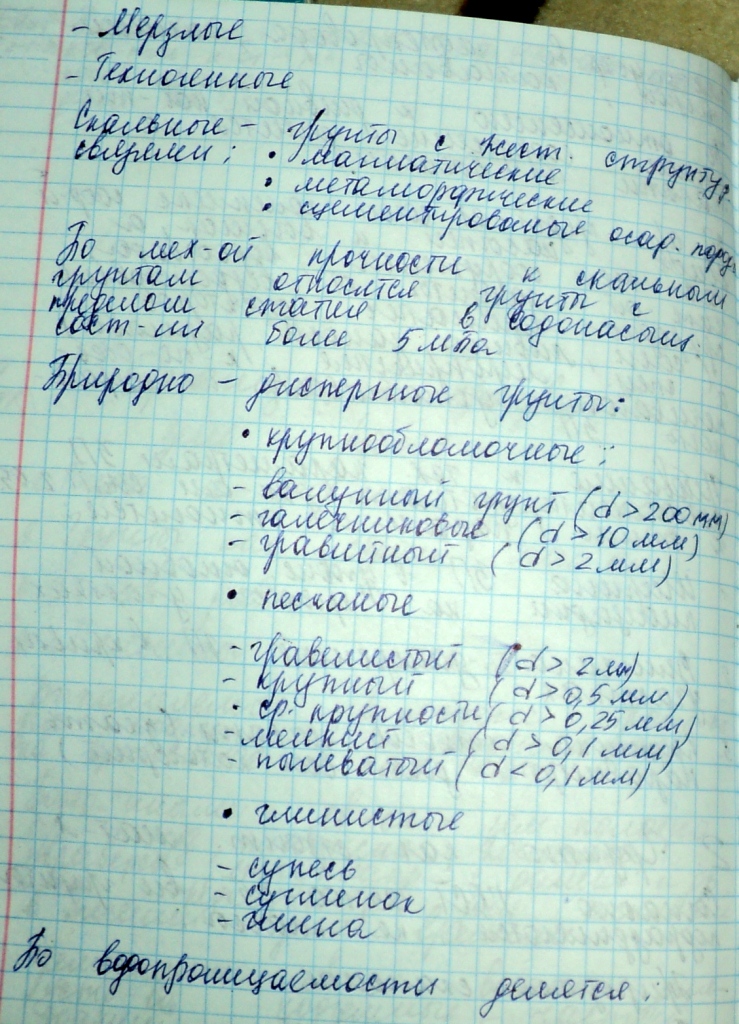 - Мерзлые
- Техногенные
Скальные - грунты с жест. структур.
связями; • магматические
• метаморфические
• сцементированые осад. пород
По мех-ой прочности к скальным
грунтам относятся грунты с
пределом сжатия в водонасыщ.
сост-ии более 5 мпа
Природно - дисперные грунты:
• крупнообломочные;
- валунный грунт (d > 200 мм)
- галечниковые (d > 10 мм)
- гравийный (d > 2 мм)
• песчаные
- гравелистый (d > 2 мм)
- крупный (d > 0,5 мм)
- ср. крупности (d > 0,25 мм)
- мелкий (d > 0,1 мм)
- пылеватый (d < 0,1 мм)
• глинистые
- супесь
- суглинок
- глина
По водопроницаемости делятся: